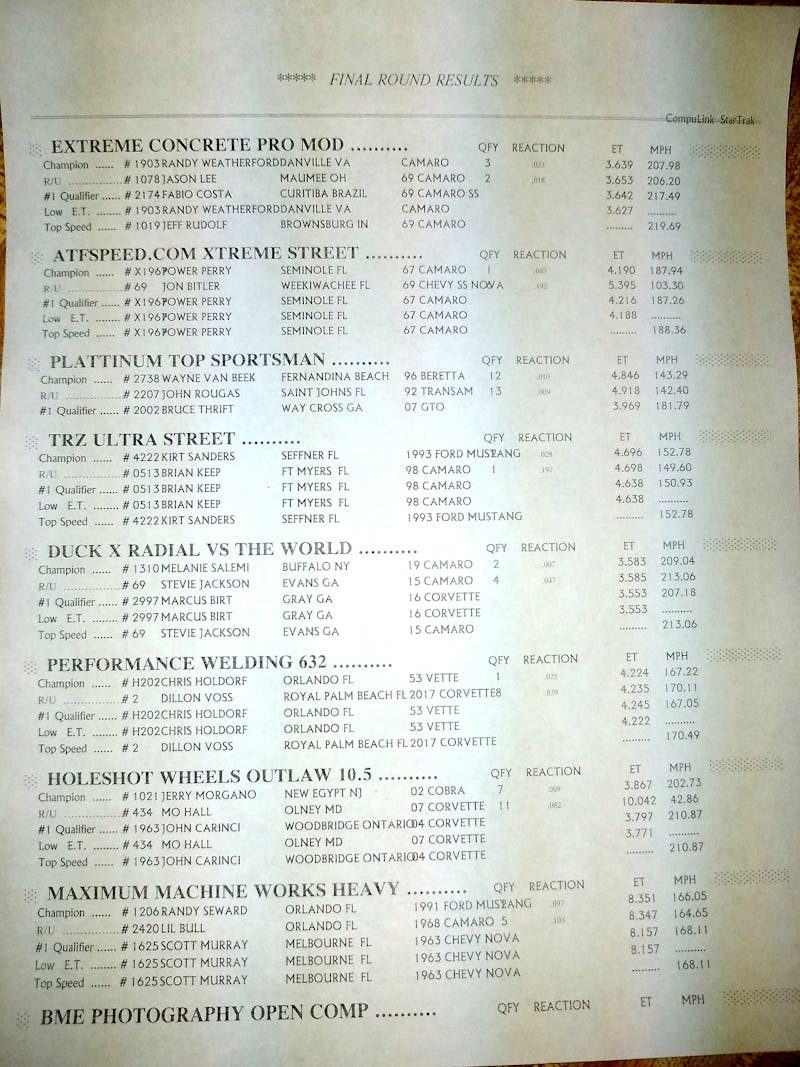 ***** FINAL ROUND RESULTS *****
CompuLink StarTrak
EXTREME CONCRETE PRO MOD .......... QFY REACTION ET MPH
Champion ...... # 1903 RANDY WEATHERFORD DANVILLE VA CAMARO 3 .023 3.639 207.98
R/U ............... # 1078 JASON LEE MAUMEE OH 69 CAMARO 2 .018 3.653 206.20
#1 Qualifier ...... # 2174 FABIO COSTA CURITIBA BRAZIL 69 CAMARO SS 3.642 217.49
Low E.T. ........ # 1903 RANDY WEATHERFORD DANVILLE VA CAMARO 3.627 ..........
Top Speed ...... # 1019 JEFF RUDOLF BROWNSBURG IN 69 CAMARO ......... 219.69
ATFSPEED.COM XTREME STREET .......... QFY REACTION ET MPH
Champion ...... # X1967 POWER PERRY SEMINOLE FL 67 CAMARO 1 .045 4.190 187.94
R/U ............... # 69 JON BITLER WEEKIWACHEE FL 69 CHEVY SS NOVA .192 5.395 103.30
#1 Qualifier ...... # X1967 POWER PERRY SEMINOLE FL 67 CAMARO 4.216 187.26
Low E.T. ........ # X1967 POWER PERRY SEMINOLE FL 67 CAMARO 4.188 ..........
Top Speed ...... # X1967 POWER PERRY SEMINOLE FL 67 CAMARO ......... 188.36
PLATTINUM TOP SPORTSMAN .......... QFY REACTION ET MPH
Champion ...... # 2738 WAYNE VAN BEEK FERNANDINA BEACH 96 BERETTA 12 .010 4.846 143.29
R/U ............... # 2207 JOHN ROUGAS SAINT JOHNS FL 92 TRANSAM 13 .009 4.918 142.40
#1 Qualifier ...... # 2002 BRUCE THRIFT WAY CROSS GA 07 GTO 3.969 181.79
TRZ ULTRA STREET .......... QFY REACTION ET MPH
Champion ...... # 4222 KIRT SANDERS SEFFNER FL 1993 FORD MUSTANG .028 4.696 152.78
R/U ............... # 0513 BRIAN KEEP FT MYERS FL 98 CAMARO 1 .197 4.698 149.60
#1 Qualifier ...... # 0513 BRIAN KEEP FT MYERS FL 98 CAMARO 4.638 150.93
Low E.T. ........ # 0513 BRIAN KEEP FT MYERS FL 98 CAMARO 4.638 ..........
Top Speed ...... # 4222 KIRT SANDERS SEFFNER FL 1993 FORD MUSTANG ......... 152.78
DUCK X RADIAL VS THE WORLD .......... QFY REACTION ET MPH
Champion ...... # 1310 MELANIE SALEMI BUFFALO NY 19 CAMARO 2 .007 3.583 209.04
R/U ............... # 69 STEVIE JACKSON EVANS GA 15 CAMARO 4 .047 3.585 213.06
#1 Qualifier ...... # 2997 MARCUS BIRT GRAY GA 16 CORVETTE 3.553 207.18
Low E.T. ........ # 2997 MARCUS BIRT GRAY GA 16 CORVETTE 3.553 ..........
Top Speed ...... # 69 STEVIE JACKSON EVANS GA 15 CAMARO ......... 213.06
PERFORMANCE WELDING 632 .......... QFY REACTION ET MPH
Champion ...... # H202 CHRIS HOLDORF ORLANDO FL 53 VETTE 1 .025 4.224 167.22
R/U ............... # 2 DILLON VOSS ROYAL PALM BEACH FL 2017 CORVETTE 8 .039 4.235 170.11
#1 Qualifier ...... # H202 CHRIS HOLDORF ORLANDO FL 53 VETTE 4.245 167.05
Low E.T. ........ # H202 CHRIS HOLDORF ORLANDO FL 53 VETTE 4.222 ..........
Top Speed ...... # 2 DILLON VOSS ROYAL PALM BEACH FL 2017 CORVETTE ......... 170.49
HOLESHOT WHEELS OUTLAW 10.5 .......... QFY REACTION ET MPH
Champion ...... # 1021 JERRY MORGANO NEW EGYPT NJ 02 COBRA 7 .009 3.867 202.73
R/U ............... # 434 MO HALL OLNEY MD 07 CORVETTE 11 .082 10.042 42.86
#1 Qualifier ...... # 1963 JOHN CARINCI WOODBRIDGE ONTARIO 04 CORVETTE 3.797 210.87
Low E.T. ........ # 434 MO HALL OLNEY MD 07 CORVETTE 3.771 ..........
Top Speed ...... # 1963 JOHN CARINCI WOODBRIDGE ONTARIO 04 CORVETTE ......... 210.87
MAXIMUM MACHINE WORKS HEAVY .......... QFY REACTION ET MPH
Champion ...... # 1206 RANDY SEWARD ORLANDO FL 1991 FORD MUSTANG .097 8.351 166.05
R/U ............... # 2420 LIL BULL ORLANDO FL 1968 CAMARO 5 .103 8.347 164.65
#1 Qualifier ...... # 1625 SCOTT MURRAY MELBOURNE FL 1963 CHEVY NOVA 8.157 168.11
Low E.T. ........ # 1625 SCOTT MURRAY MELBOURNE FL 1963 CHEVY NOVA 8.157 ..........
Top Speed ...... # 1625 SCOTT MURRAY MELBOURNE FL 1963 CHEVY NOVA ......... 168.11
BME PHOTOGRAPHY OPEN COMP .......... QFY REACTION ET MPH